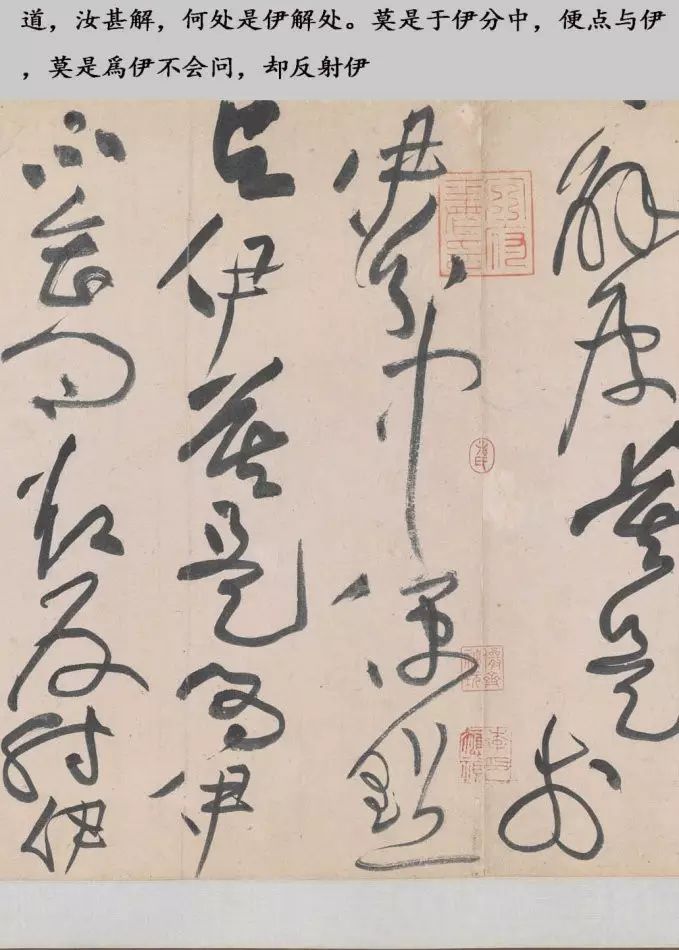 道，汝甚解，何处是伊解处。莫是于伊分中，便点与伊
，莫是爲伊不会问，却反射伊
解處莫是於
伊分中便點
与伊莫是為伊
不會問却反射伊